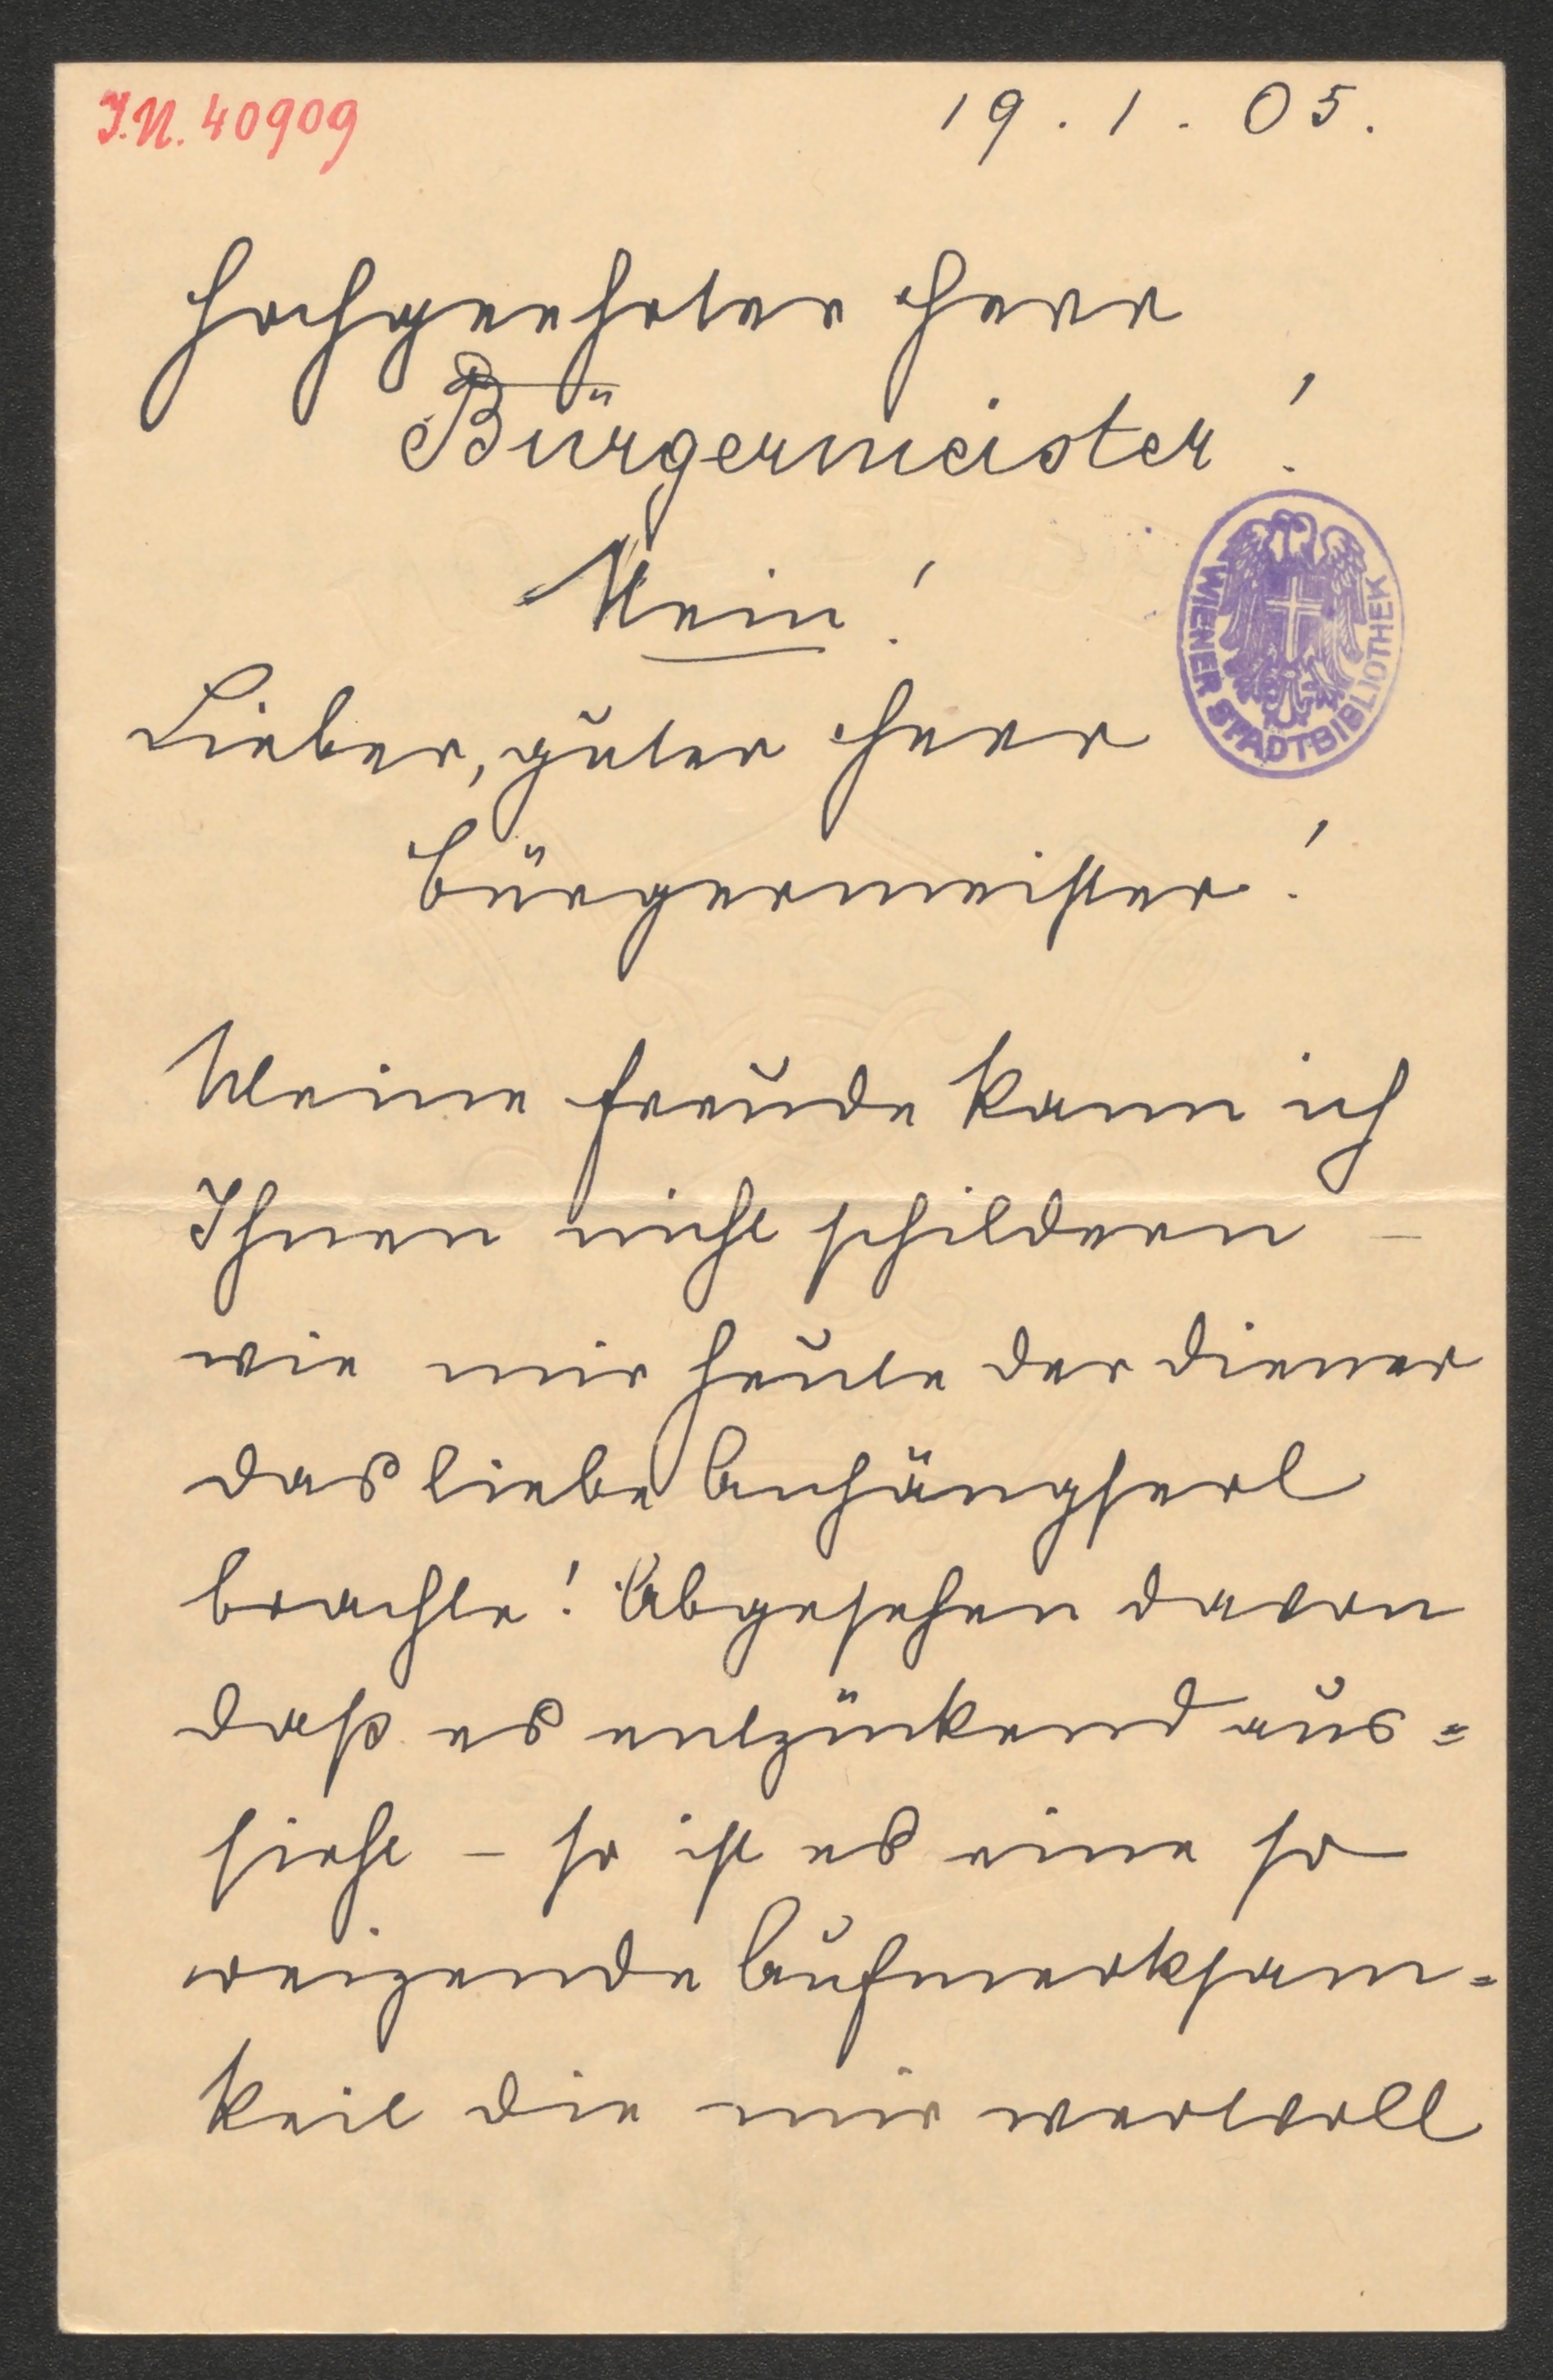 I.N. 40909
19.1.05.
Hochgeehrter Herr
Bürgermeister!
Nein!
Lieber, guter Herr
Bürgermeister!
WIENER STADTBIBLIOTHEK
Meine Freude kann ich
Ihnen nicht schildern –
wie mir heute der Diener
das liebe Anhängserl
brachte! Abgesehen davon
daß es entzückend aus=
sieht – so ist es eine so
reizende Aufmerksam=
keit die mir wertvoll